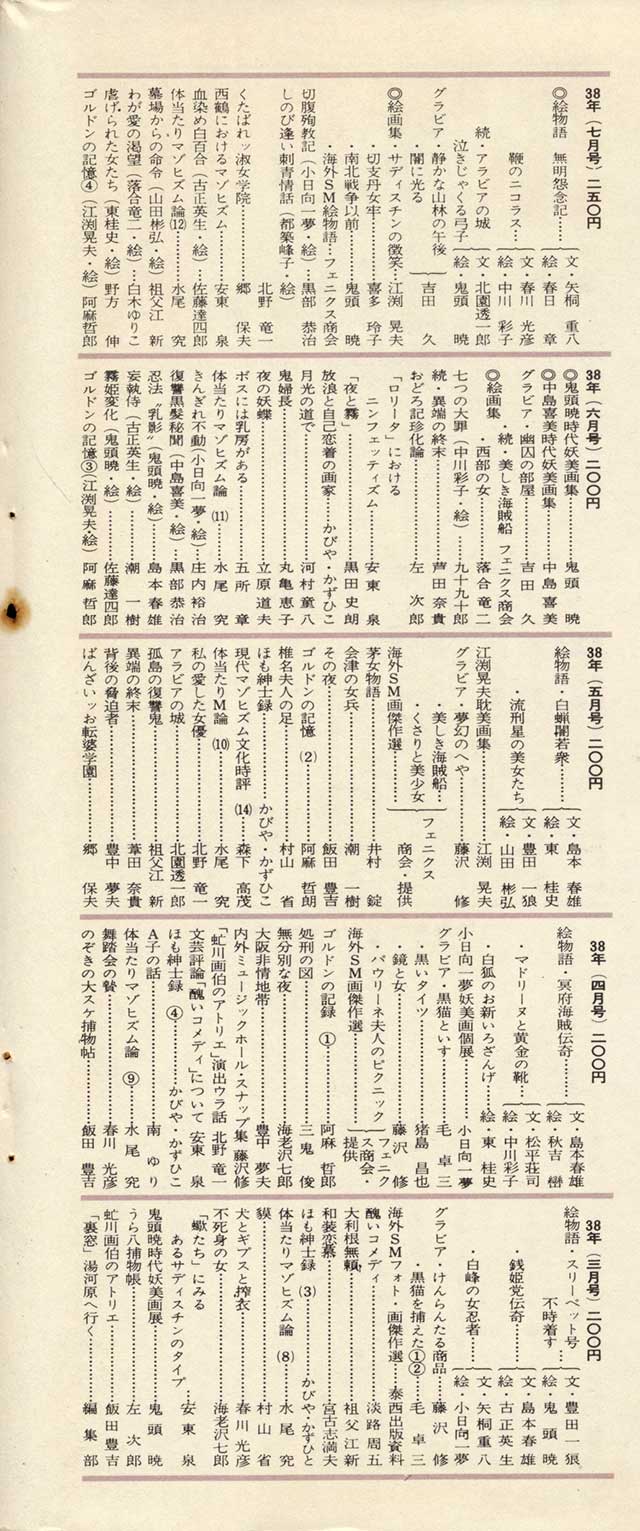 38年(七月号)二五〇円
◎絵物語 無明怨念記…{文・矢桐 重八
絵・春日 章
鞭のニコラス…{文・春川 光彦
絵・中川 彩子
続・アラビアの城{文・北園透一郎
泣きじゃくる弓子{絵・鬼頭 暁
グラビア・静かな山林の午後
・闇に光る}吉田 久
◎絵画集・サディスチンの微笑…江渕 晃夫
・切支丹女牢…喜多 玲子
・南北戦争以前…鬼頭 暁
・海外SM絵物語…フェニクス商会
切腹殉教記(小日向一夢・絵)…黒部 恭治
しのび逢い刺青情話(都築峰子・絵)
北野 竜一
くたばれッ淑女学院…郷 保夫
西鶴におけるマゾヒズム…安東 泉
体当たりマゾヒズム論⑿…水尾 究
血染め白百合(古正英生・絵)…佐藤達四郎
墓場からの命令(山田彬弘・絵)祖父江 新
わが愛の渇望(落合竜二・絵)…白木ゆりこ
虐げられた女たち(東桂史・絵)野方 伸
ゴルドンの記憶④(江渕晃夫・絵)阿麻哲郎
38年(六月号)二〇〇円
◎鬼頭暁時代妖美画集…鬼頭 暁
◎中島喜美時代妖美画集…中島 喜美
グラビア・幽囚の部屋…吉田 久
◎絵画集・続・美しき海賊船 フェニクス商会
・西部の女…落合 竜二
七つの大罪(中川彩子・絵)…九十九十郎
続・異端の終末…芦田 奈貴
おどろ記珍化論…左 次郎
「ロリータ」における
ニンフェッティズム…安東 泉
「夜と霧」…黒田 史朗
放浪と自己恋着の画家…かびや・かずひこ
月光の道で…河村 童八
鬼婦長…丸亀 恵子
夜の妖蝶…立原 道夫
ボスには乳房がある…五所 章
体当たりマゾヒズム論⑾…水尾 究
きんぎれ不動(小日向一夢・絵)庄内 裕治
復讐黒髪秘聞(中島喜美・絵)…黒部 恭治
忍法〝乳影〟(鬼頭暁・絵)…島本 春雄
妄執侍(古正英生・絵)…潮 一樹
霧姫変化(鬼頭暁・絵)…佐藤達四郎
ゴルドンの記憶③(江渕晃夫・絵)阿麻 哲郎
38年(五月号)二〇〇円
絵物語・白蝋闇若衆…{文・島本 春雄
絵・東 桂史
・流刑星の美女たち{文・豊田 一狼
絵・山田 彬弘
江渕晃夫耽美画集…江渕 晃夫
グラビア・夢幻のへや…藤沢 修
・美しき海賊船…
・くさりと美少女
海外SM画傑作選…}フェニクス
商会・提供
茅女物語…井村 錠
会津の女兵…潮 一樹
その夜…飯田 豊吉
ゴルドンの記憶(2)…阿麻 哲朗
椎名夫人の足…村山 省
ほも紳士録…かびや・かずひこ
現代マゾヒズム文化時評⒁…森下 高茂
体当たりM論⑽…水尾 究
私の愛した女優…北野 竜一
アラビアの城…北園透一郎
孤島の復讐鬼…祖父江 新
異端の終末…葦田 奈貴
背後の脅迫者…豊中 夢夫
ばんざいッお転婆学園…郷 保夫
38年(四月号)二〇〇円
絵物語・冥府海賊伝奇…{文・島本春雄
絵・秋吉 巒
・マドリーヌと黄金の靴…{文・松平荘司
絵・中川彩子
・白狐のお新いろざんげ…絵・東 桂史
小日向一夢妖美画個展…小日向一夢
グラビア・黒猫といす…毛 卓三
・黒いタイツ…猪島 昌也
・鏡と女…藤沢 修
・パウリーネ夫人のピクニック
海外SM画傑作選…}フェニク
ス商会・
提供
ゴルドンの記録①…阿麻 哲郎
処刑の図…三鬼 俊
無分別な夜…海老沢七郎
大阪非情地帯…豊中 夢夫
内外ミュージックホール・スナップ集 藤沢修
「虹川画伯のアトリエ」演出ウラ話 北野 竜一
文芸評論「醜いコメディ」について 安東 泉
ほも紳士録④…かびや・かずひこ
A子の話…南 ゆり
体当たりマゾヒズム論⑨…水尾 究
舞踏会の贄…春川 光彦
のぞきの大スケ捕物帖…飯田 豊吉
38年(三月号)二〇〇円
絵物語・スリーペット号
不時着す…{文・豊田 一狼
絵・鬼頭 暁
・銭姫党伝奇…{文・島本春雄
絵・古正英生
・白峰の女忍者…{文・矢桐重八
絵・小日向一夢
グラビア・けんらんたる商品…藤沢 修
・黒猫を捕えた①②…毛 卓三
海外SMフォト・画傑作選…泰西出版資料
醜いコメディ…淡路 周五
大利根無頼…祖父江新
和装恋慕…宮古志満夫
ほも紳士録(3)…かびや・かずひと
体当たりマゾヒズム論(8)…水尾 究
貘…村山 省
犬とギブスと搾衣…春川 光彦
不死身の女…海老沢七郎
「蠍たち」にみる
あるサディスチンのタイプ…安東 泉
鬼頭暁時代妖美画展…鬼頭 暁
うら八捕物帳…左 次郎
虹川画伯のアトリエ…飯田 豊吉
「裏窓」湯河原へ行く…編集部